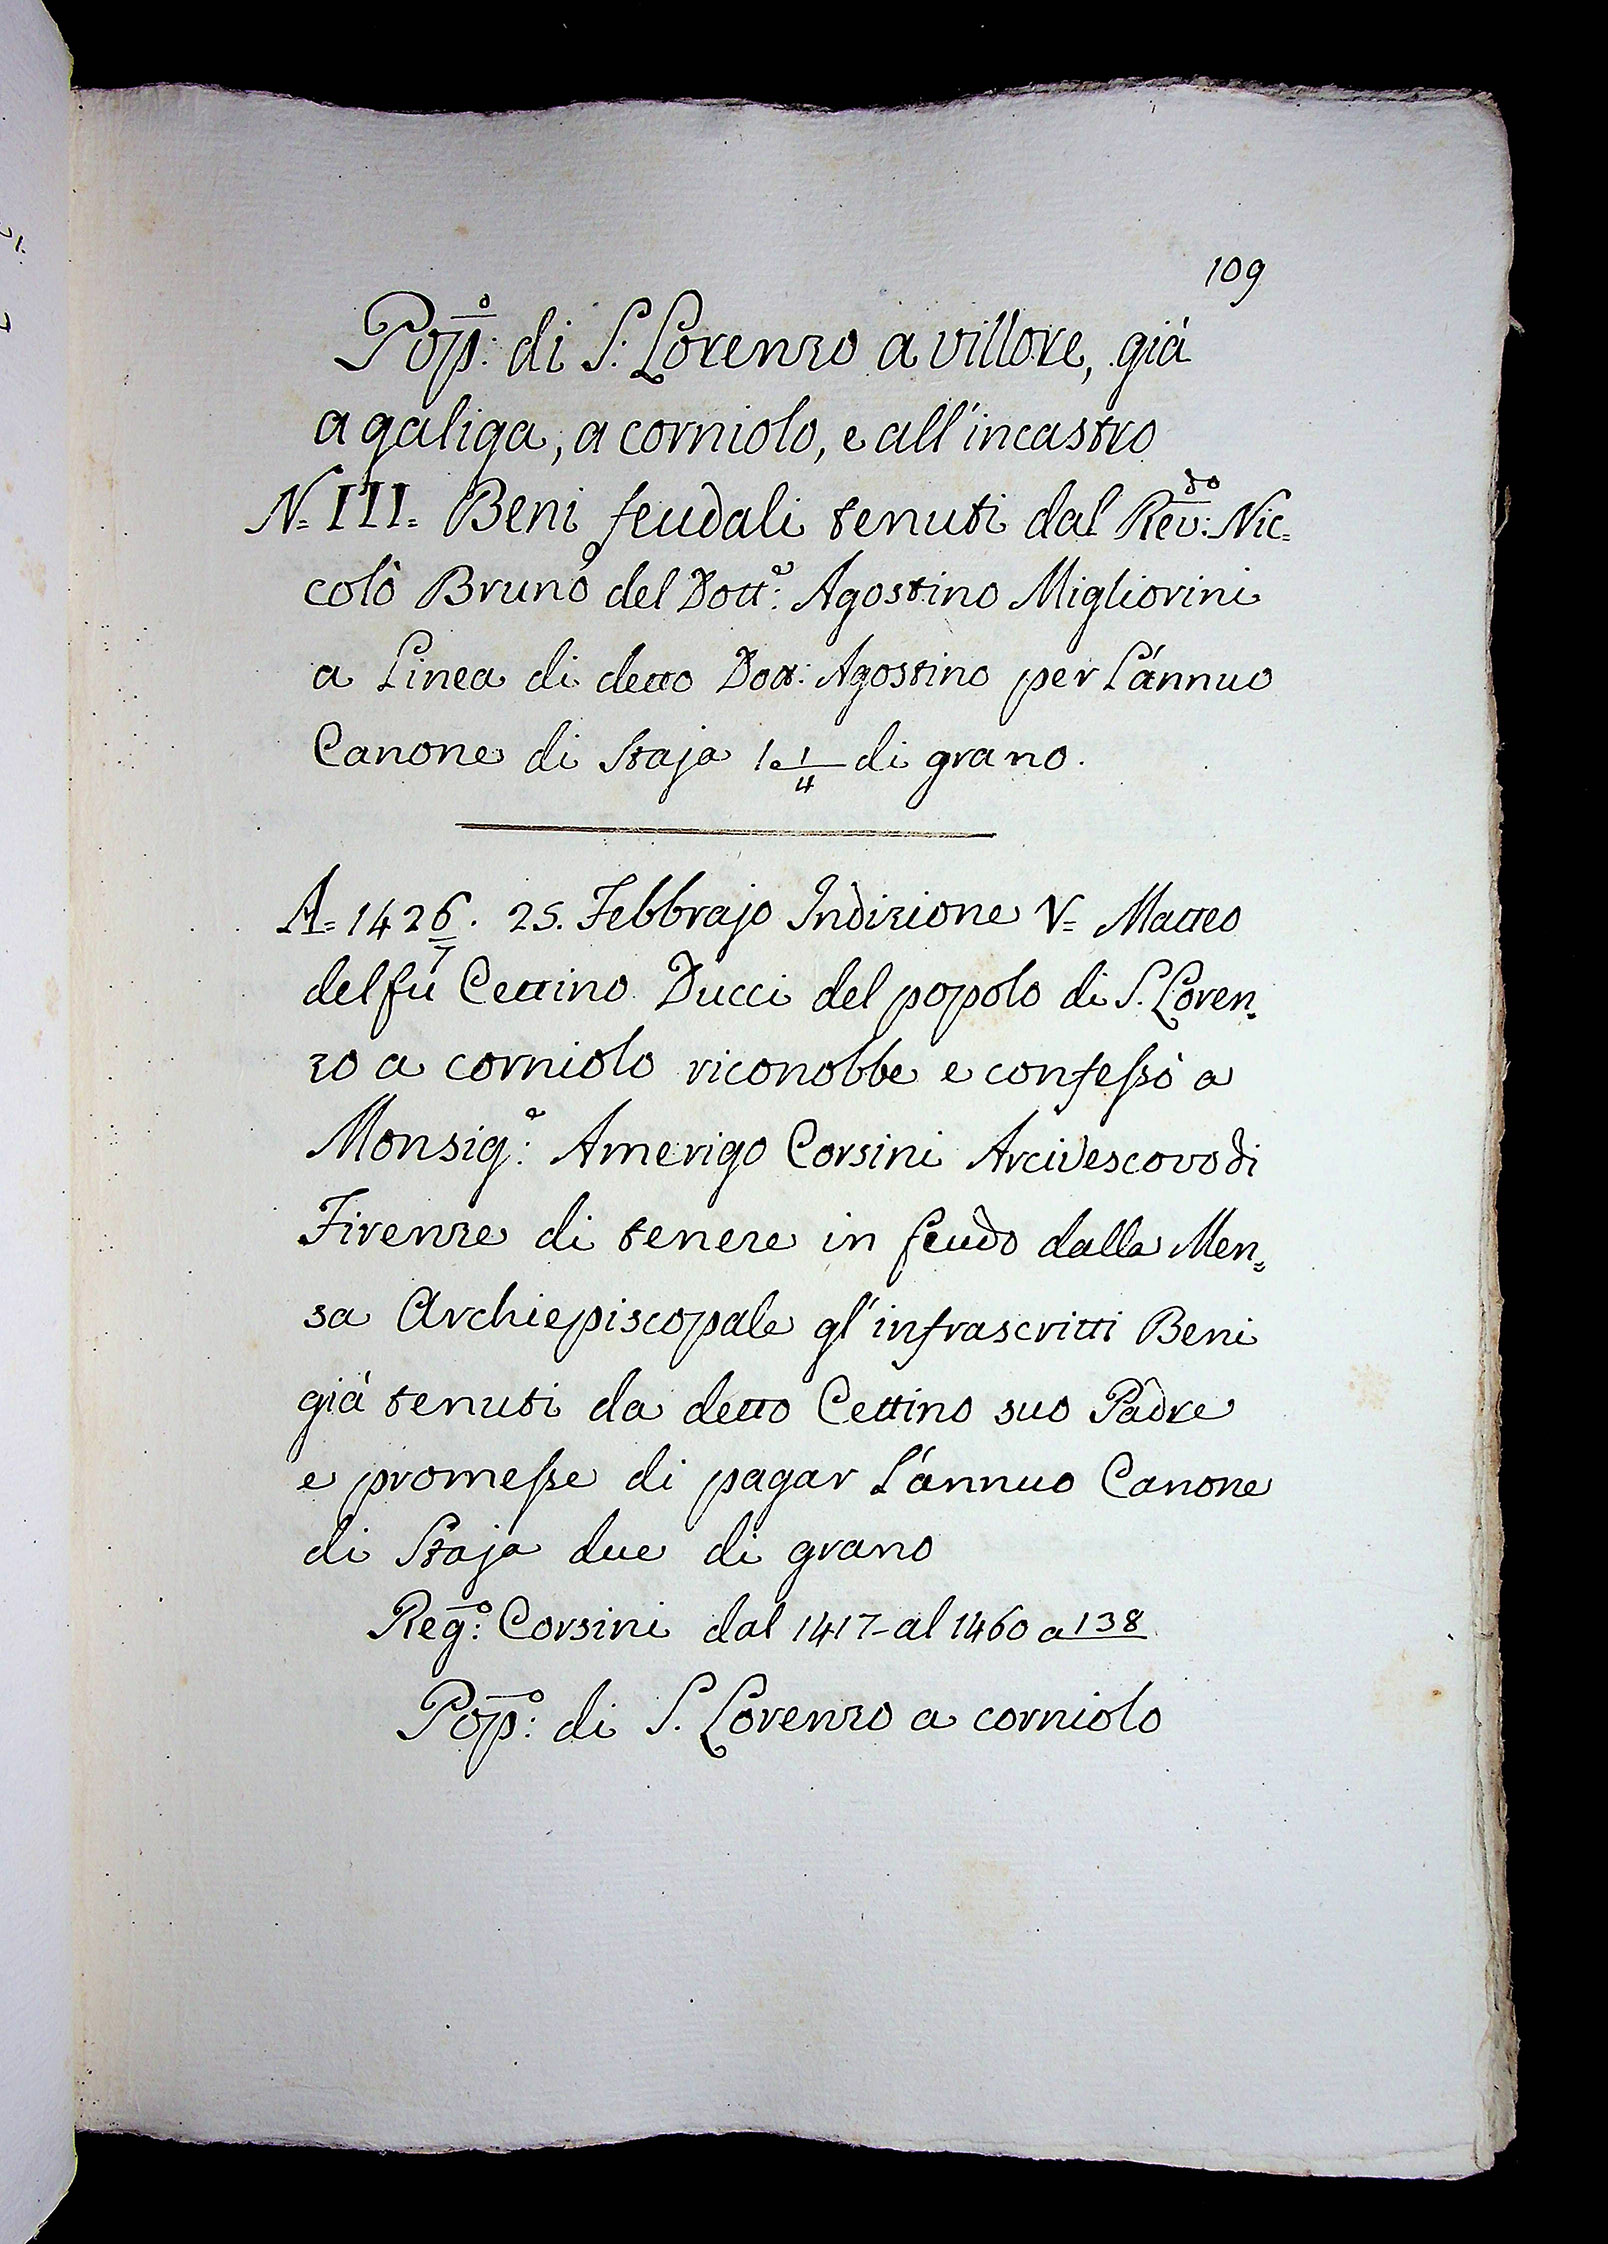 109
Pop:º di S: Lorenzo a villore, già
a galiga, a corniolo, e all'incastro
N= III= Beni feudali tenuti dal Rev:do Nic=
colò Bruno del Dott:e Agostino Migliorini
a Linea di detto Dott: Agostino per l'annuo
Canone di Staja 1 e 1/4 di grano.
A= 1426/7. 25. Febbrajo Indizione V= Matteo
del fù Cettino Ducci del popolo di S. Loren=
zo a corniolo riconobbe e confessò a
Monsig:e Amerigo Corsini Arcivescovo di
Firenze di tenere in feudo dalla Men=
sa Archiepiscopale gl'infrascritti Beni
già tenuti da detto Cettino suo Padre
e promesse di pagar l'annuo Canone
di Staja due di grano
Reg:º Corsini dal 1417- al 1460 a 138
Pop:º di S. Lorenzo a corniolo